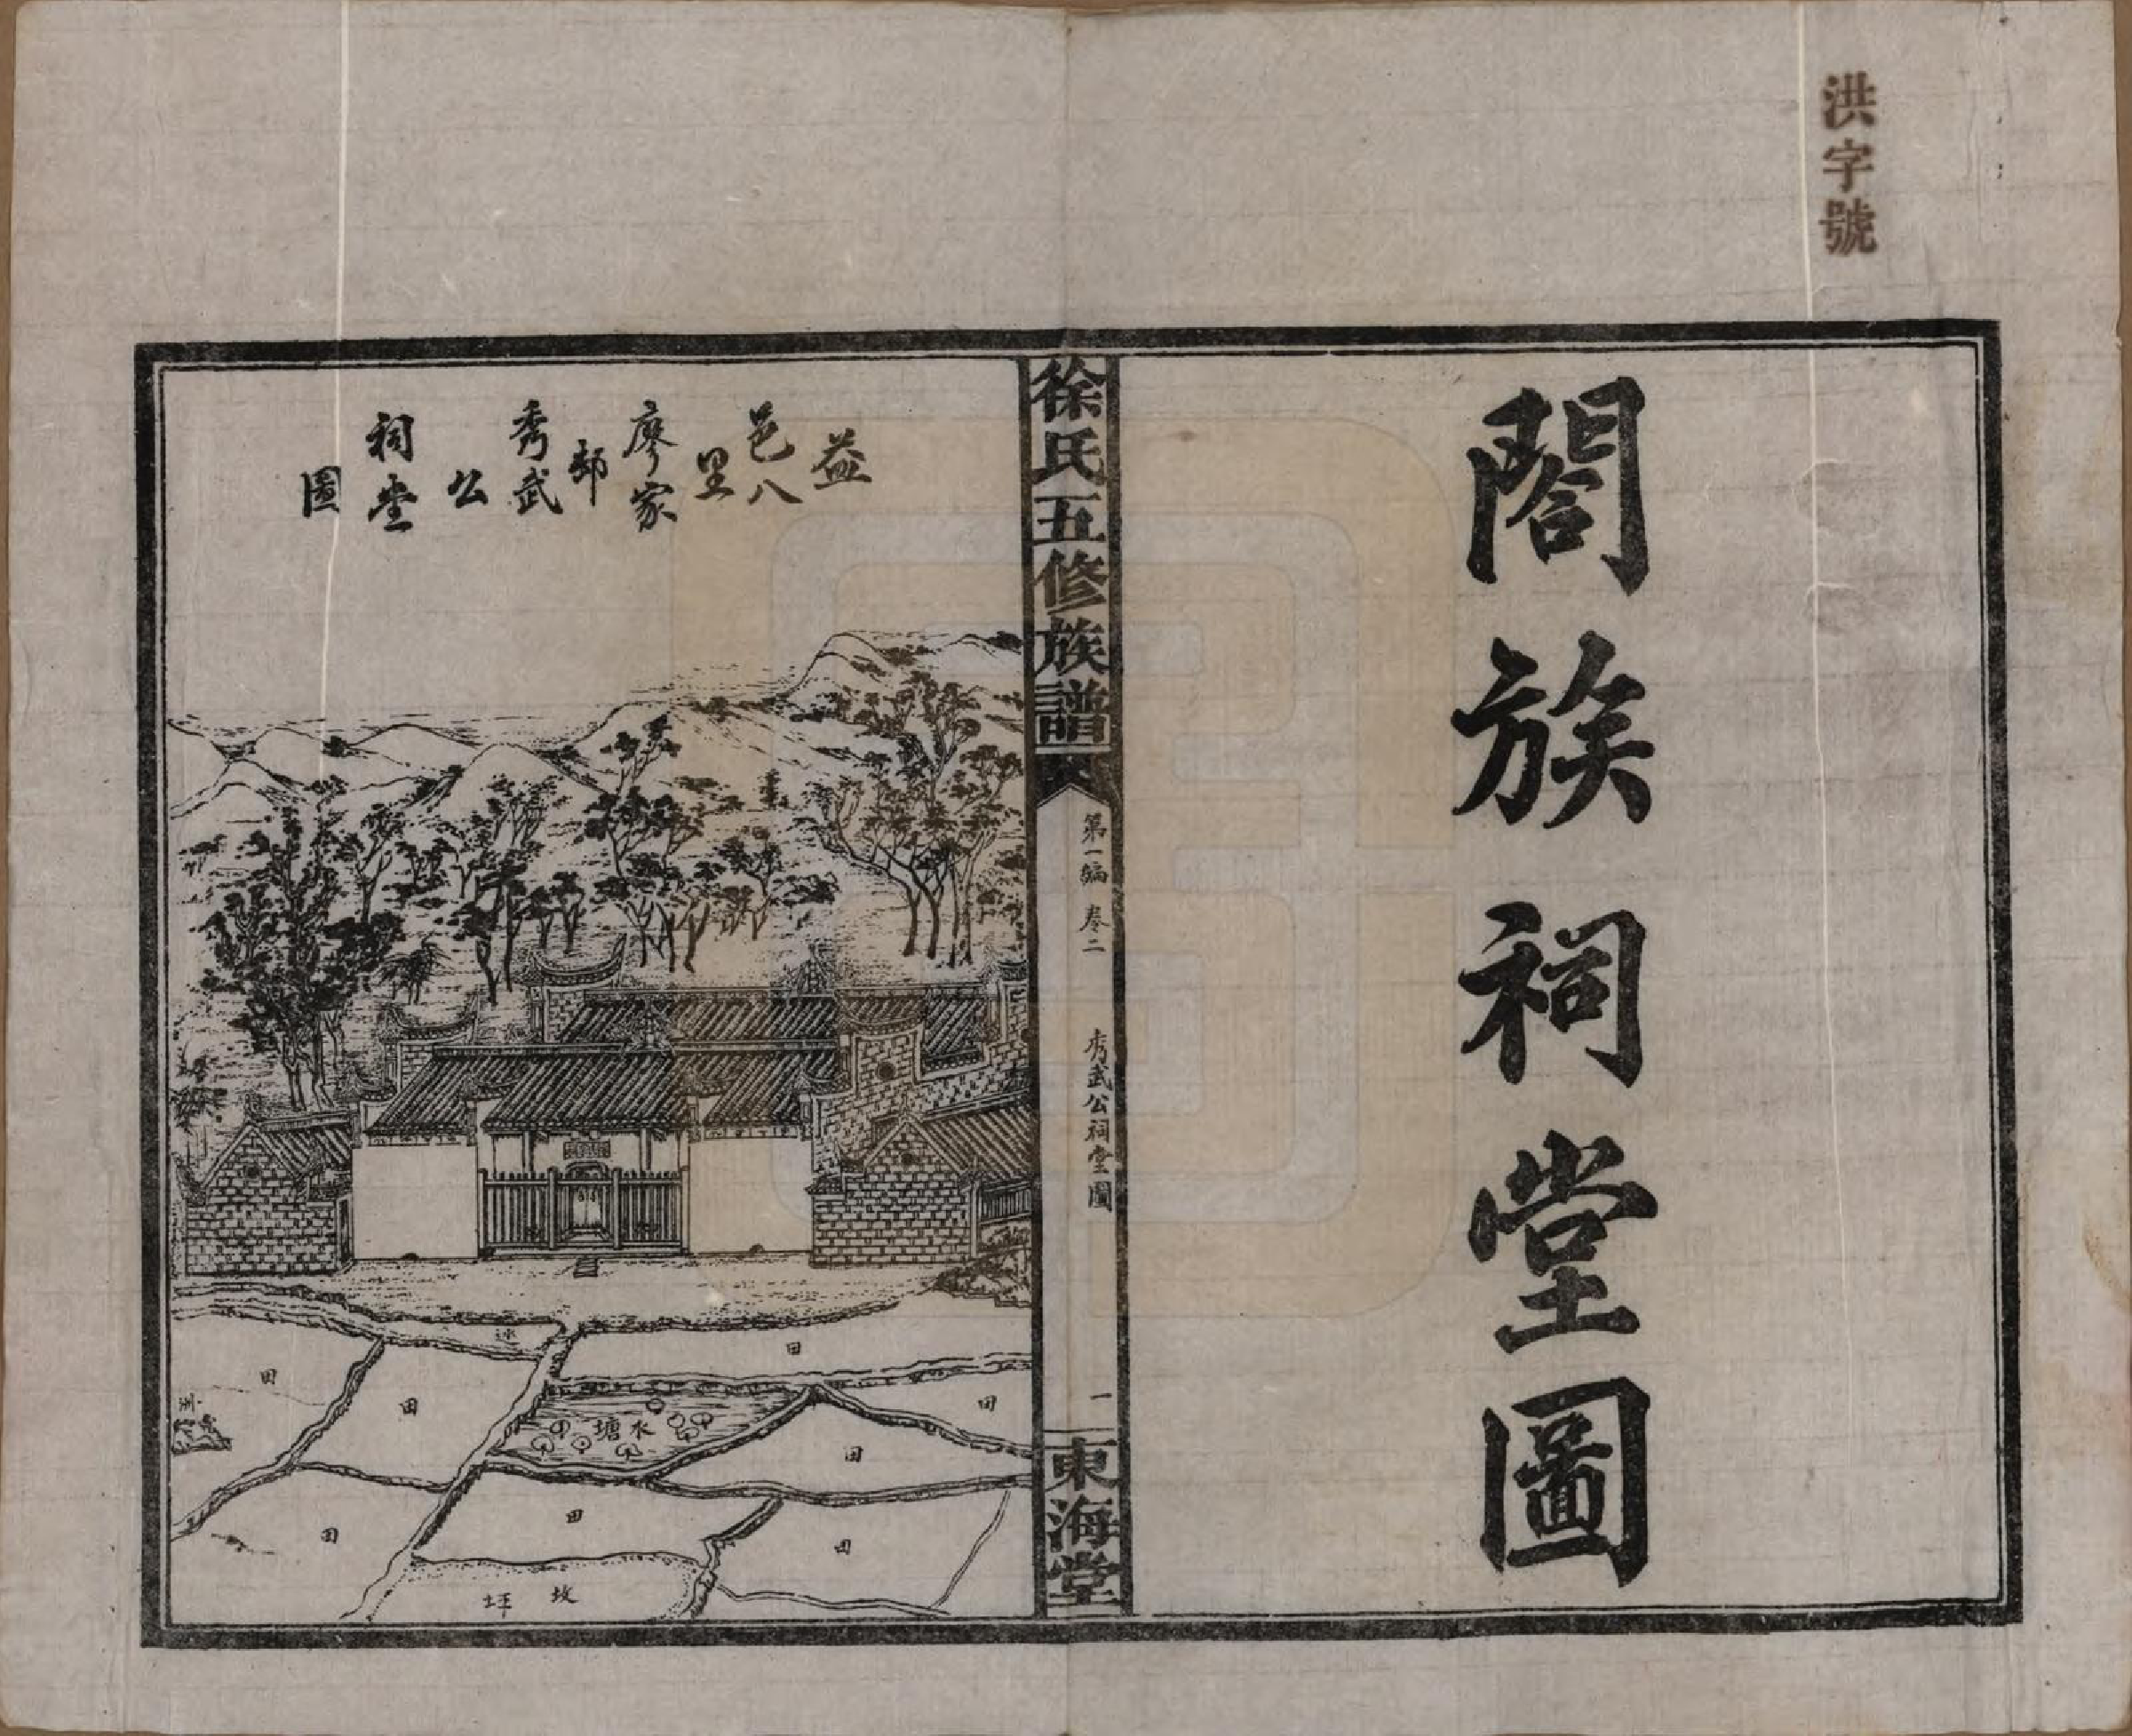 洪字號
閤族祠堂圖
徐氏五修族譜
第一編 卷二
秀武公祠堂圖
一
東海堂
益
邑八
里
廖家
邨
秀武
公
祠堂
圖
田
田
田
田
水塘
田
田
田
田
坟坪